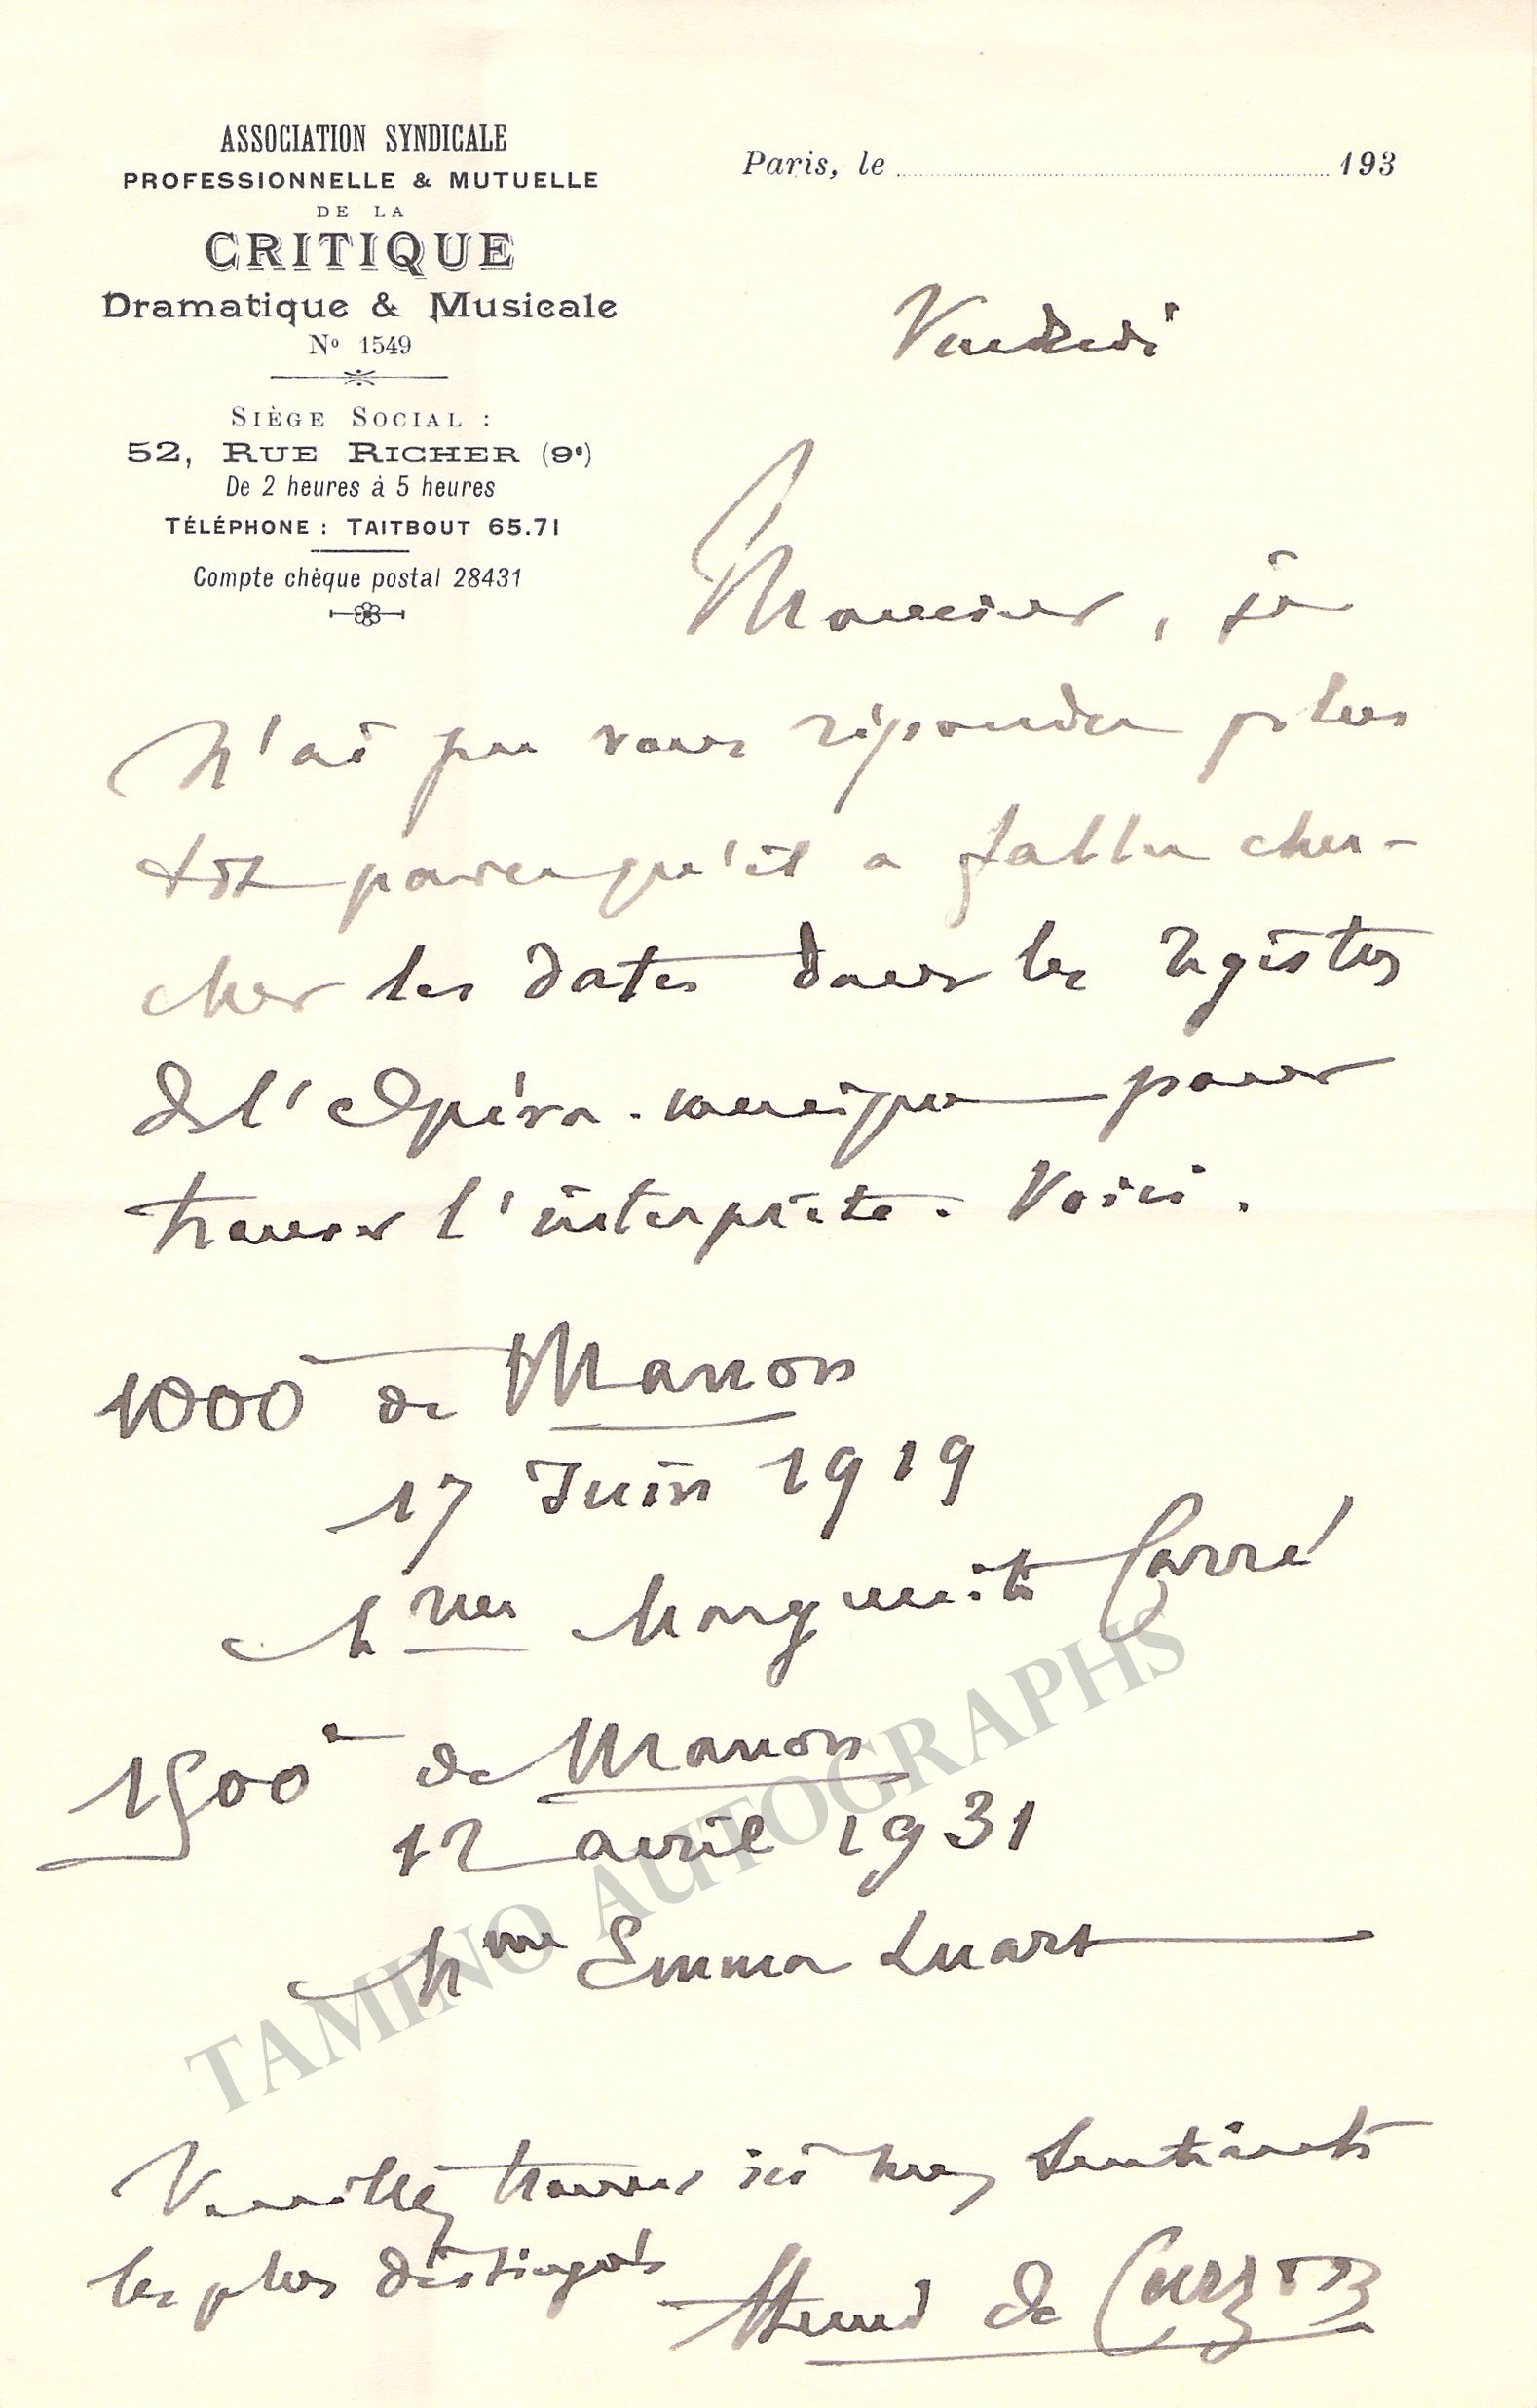 ASSOCIATION SYNDICALE
PROFESSIONNELLE & MUTUELLE
DE LA
CRITIQUE
Dramatique & Musicale
No 1549
SIÈGE SOCIAL :
52, RUE RICHER (9e)
De 2 heures à 5 heures
TÉLÉPHONE : TAITBOUT 65.71
Compte chèque postal 28431
Paris, le 193
Vendredi
Monsieur, je
n'ai pu vous répondre plus
tôt parce qu'il a fallu cher-
cher les dates dans les registres
de l'Opéra-comique pour
trouver l'interprète. Voici.
1000e de Manon
17 Juin 1919
Mme Marguerite Carré
1500e de Manon
12 avril 1931
Mme Emma Luart
Veuillez trouver ici mes sentiments
les plus distingués
Henri de Curzon
TAMINO AUTOGRAPHS